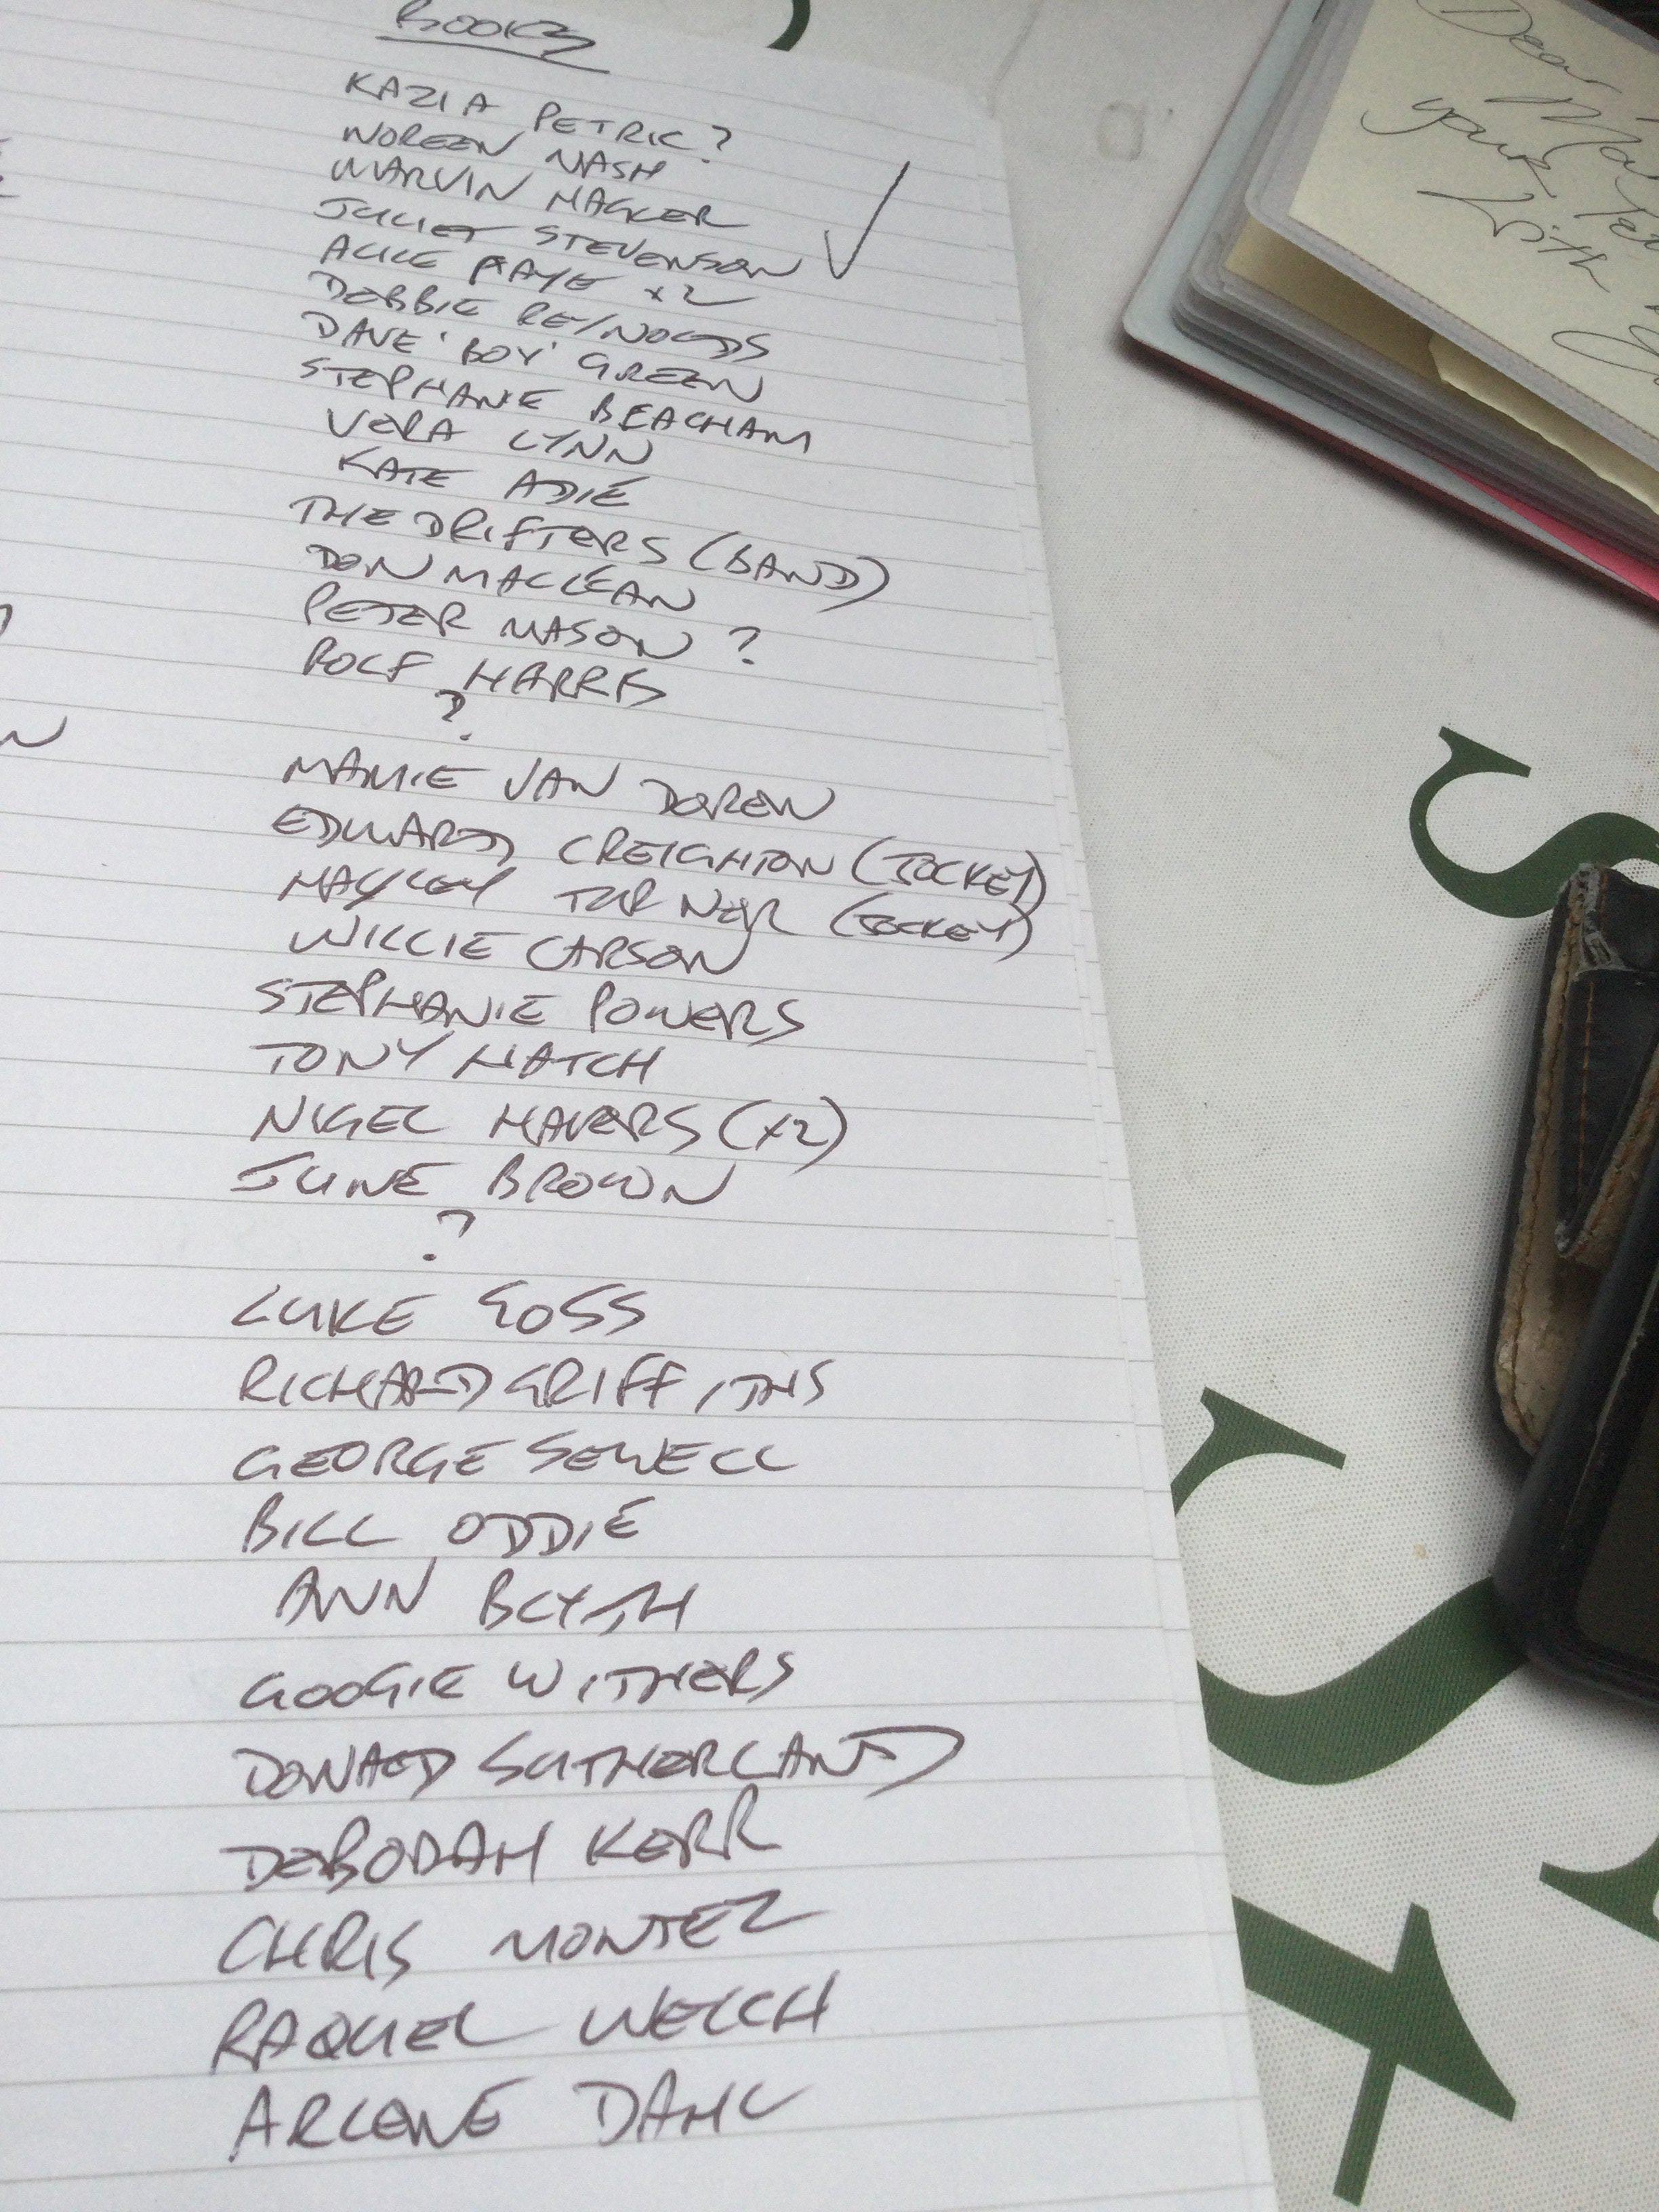 BOOKS
KAZIA PETRIC?
NOREEN NASH
MARVIN HAGLER
JULIET STEVENSON
ALICE FAYE x2
DEBBIE REYNOLDS
DAVE 'BOY' GREEN
STEPHANIE BEACHAM
VERA LYNN
KATE ADIE
THE DRIFTERS (BAND)
DON MACLEAN
PETER MASON ?
ROLF HARRIS
?
MAMIE VAN DOREN
EDWARD CREIGHTON (JOCKEY)
HAYLEY TURNER (JOCKEY)
WILLIE CARSON
STEPHANIE POWERS
TONY HATCH
NIGEL HAVERS (x2)
JUNE BROWN
?
LUKE GOSS
RICHARD GRIFFITHS
GEORGE SEWELL
BILL ODDIE
ANN BLYTH
GOOGIE WITHERS
DONALD SUTHERLAND
DEBORAH KERR
CHRIS MONTEZ
RAQUEL WELCH
ARLENE DAHL
Dear
your
With